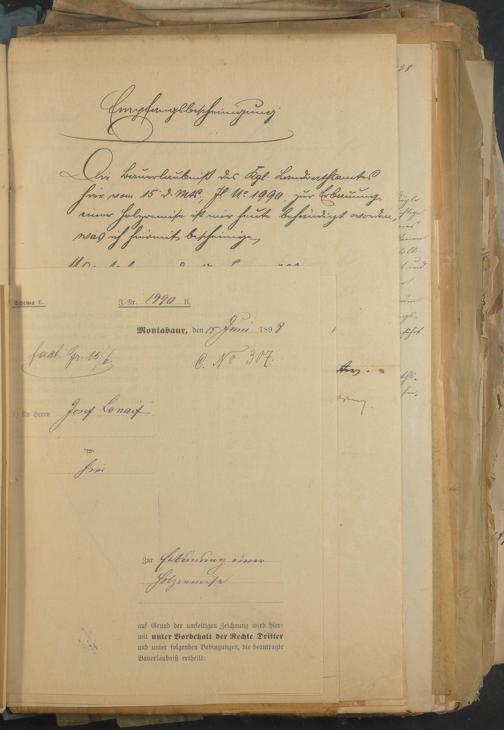 Empfangsbescheinigung
Die Bauerlaubniß des Kgl. Landrathsamtes
hier vom 15 d. Mts, Jl No 1990 zur Erbauung
einer Holzremise ist mir heute behändigt worden,
was ich hiermit bescheinige,
Schema E.
J.-Nr. 1990 II.
Montabaur, den 15 Juni 1898
C. No 307.
An Herrn Josef
hier
Zur Erbauung einer
Holzremise
auf Grund der umseitigen Zeichnung wird hier-
mit unter Vorbehalt der Rechte Dritter
und unter folgenden Bedingungen, die beantragte
Bauerlaubniß ertheilt: